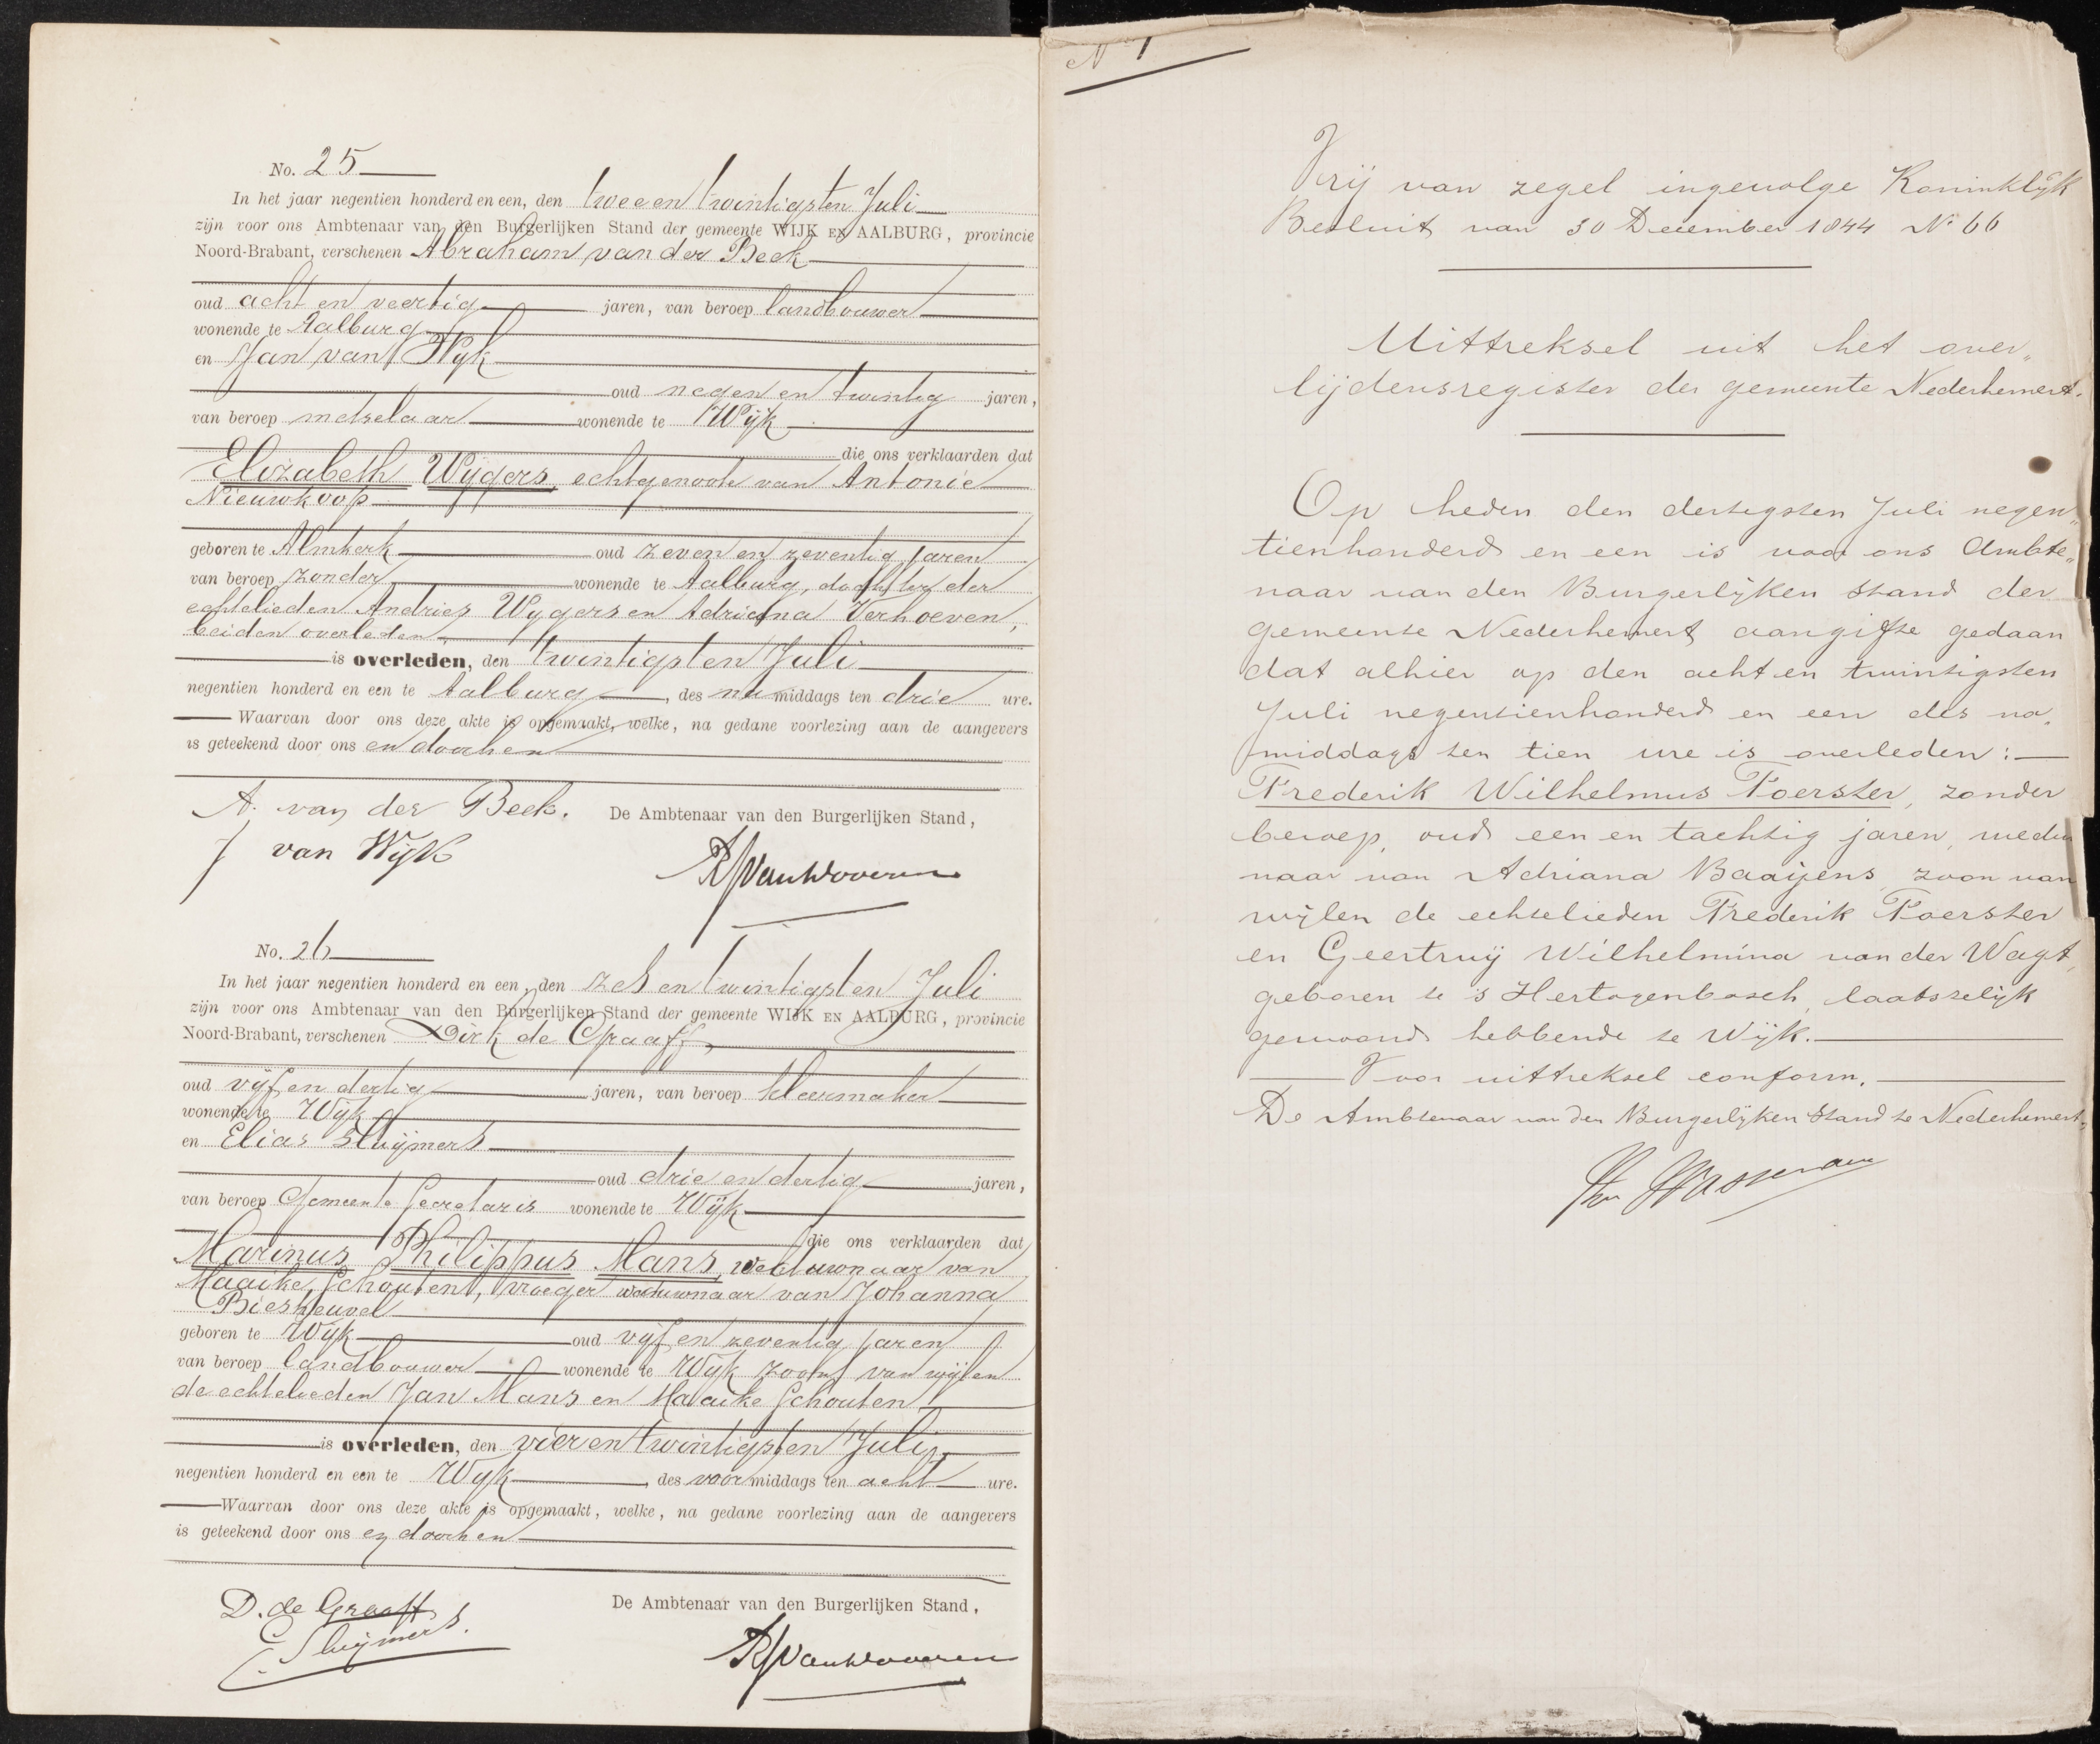 No. 25
In het jaar negentien honderd en een, den twee en twintigsten Juli
zijn voor ons Ambtenaar van den Burgerlijken Stand der gemeente WIJK EN AALBURG, provincie
Noord-Brabant, verschenen Abraham van der Beek
oud acht en veertig jaren, van beroep landbouwer
wonende te Aalburg
en Jan van Wijk
oud negen en twintig jaren,
van beroep metselaar wonende te Wijk
die ons verklaarden dat
Elizabeth Wijgers, echtgenoote van Antonie
Nieuwkoop
geboren te Almkerk oud zeven en zeventig jaren
van beroep zonder wonende te Aalburg, dochter der
echtelieden Andries Wijgers en Adriana Verhoeven,
beiden overleden,
is overleden, den twintigsten Juli
negentien honderd en een te Aalburg, des namiddags ten drie ure.
Waarvan door ons deze akte is opgemaakt, welke, na gedane voorlezing aan de aangevers
is geteekend door ons en door hen
A. van der Beek. De Ambtenaar van den Burgerlijken Stand,
J van Wijk
No. 26
In het jaar negentien honderd en een, den zes en twintigsten Juli
zijn voor ons Ambtenaar van den Burgerlijken Stand der gemeente WIJK EN AALBURG, provincie
Noord-Brabant, verschenen Dirk de Graaff,
oud vijf en dertig jaren, van beroep kleermaker
wonende te Wijk
en Elias Sluijmers
oud drie en dertig jaren,
van beroep Gemeente Secretaris wonende te Wijk
die ons verklaarden dat
Marinus Philippus Mans, weduwnaar van
Maaike Schouten, vroeger weduwnaar van Johanna
Biesheuvel
geboren te Wijk oud vijf en zeventig jaren
van beroep landbouwer wonende te Wijk zoon van wijlen
de echtelieden Jan Mans en Maaike Schouten
is overleden, den vier en twintigsten Juli
negentien honderd en een te Wijk, des voormiddags ten acht ure.
Waarvan door ons deze akte is opgemaakt, welke, na gedane voorlezing aan de aangevers
is geteekend door ons en door hen
D. de Graaff De Ambtenaar van den Burgerlijken Stand,
E. Sluijmers.
No 1
Vrij van zegel ingevolge Koninklijk
Besluit van 30 December 1844 No 66
Uittreksel uit het over„
lijdensregister der gemeente Nederhemert.
Op heden den dertigsten Juli negen„
tienhonderd en een is voor ons Ambte„
naar van den Burgerlijken stand der
gemeente Nederhemert aangifte gedaan
dat alhier op den acht en twintigsten
Juli negentienhonderd en een des na„
middags ten tien ure is overleden:
Frederik Wilhelmus Foerster, zonder
beroep, oud een en tachtig jaren, weduw
naar van Adriana Baaijens, zoon van
wijlen de echtelieden Frederik Foerster
en Geertruij Wilhelmina van der Wagt,
geboren te 's Hertogenbosch, laatstelijk
gewoond hebbende te Wijk.
Voor uittreksel conform,
De Ambtenaar van den Burgerlijken Stand te Nederhemert,